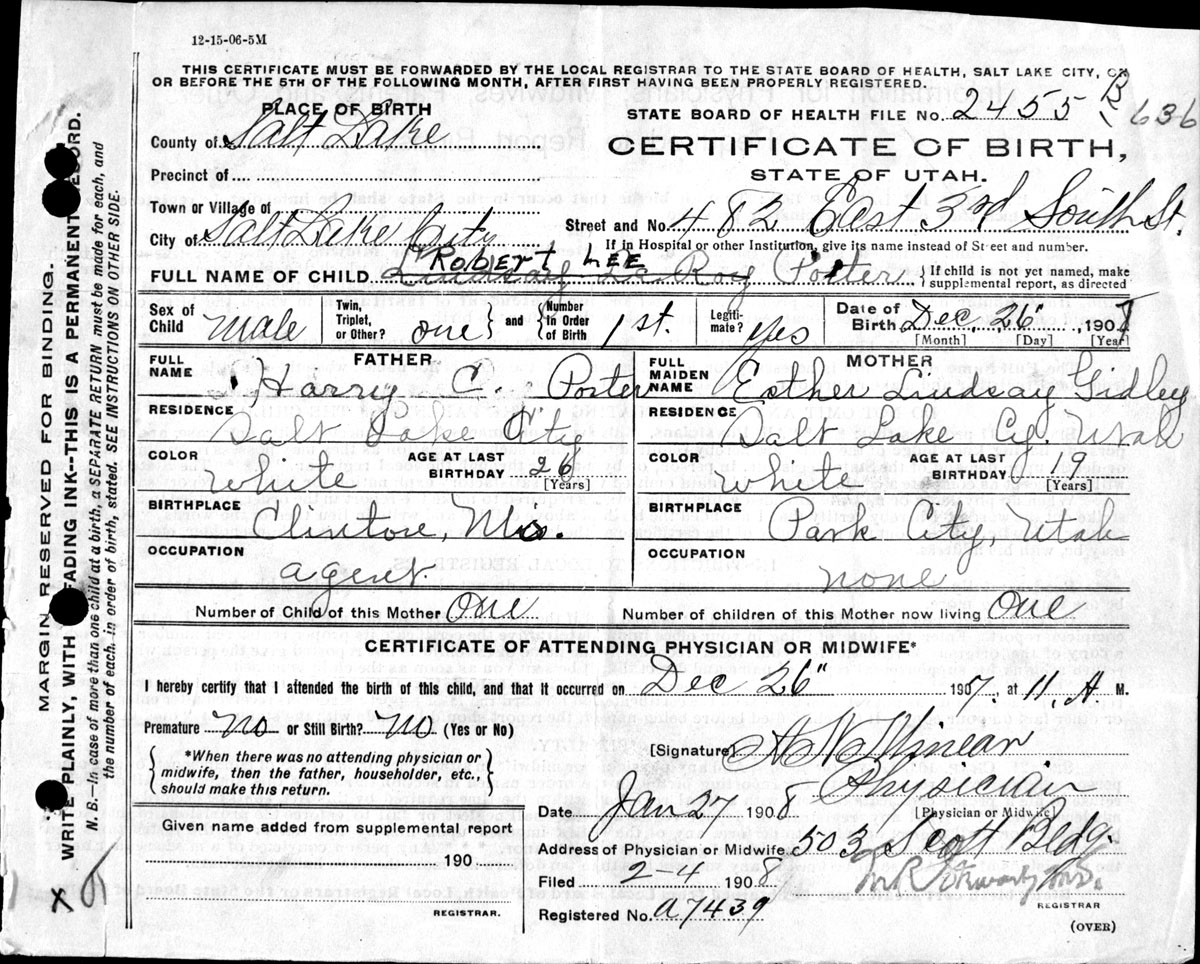 12-15-06-5M
THIS CERTIFICATE MUST BE FORWARDED BY THE LOCAL REGISTRAR TO THE STATE BOARD OF HEALTH, SALT LAKE CITY, ON
OR BEFORE THE 5TH OF THE FOLLOWING MONTH, AFTER FIRST HAVING BEEN PROPERLY REGISTERED.
PLACE OF BIRTH
STATE BOARD OF HEALTH FILE No. 2455 B 636
County of Salt Lake
CERTIFICATE OF BIRTH,
STATE OF UTAH.
Precinct of
Town or Village of
Street and No. 482 East 3rd South St.
City of Salt Lake City
If in Hospital or other Institution, give its name instead of Street and number.
Robert Lee
FULL NAME OF CHILD Lindsay Le Roy Porter { If child is not yet named, make supplemental report, as directed
Sex of Child Male Twin, Triplet, or Other? one and Number in Order of Birth 1st. Legitimate? yes Date of Birth Dec, 26, 1907
[Month] [Day] [Year]
FATHER
FULL NAME Harry C. Porter
RESIDENCE Salt Lake City
COLOR White AGE AT LAST BIRTHDAY 26 [Years]
BIRTHPLACE Clinton, Mo.
OCCUPATION agent
MOTHER
FULL MAIDEN NAME Esther Lindsay Gidley
RESIDENCE Salt Lake Cy. Utah
COLOR White AGE AT LAST BIRTHDAY 19 [Years]
BIRTHPLACE Park City, Utah
OCCUPATION none
Number of Child of this Mother One Number of children of this Mother now living One
CERTIFICATE OF ATTENDING PHYSICIAN OR MIDWIFE*
I hereby certify that I attended the birth of this child, and that it occurred on Dec 26" 1907, at 11, A M.
Premature No or Still Birth? No (Yes or No)
*When there was no attending physician or midwife, then the father, householder, etc., should make this return.
[Signature] Minear
Physician
[Physician or Midwife]
Date Jan 27 1908
Address of Physician or Midwife 503 Scott Bldg.
Given name added from supplemental report
190
REGISTRAR.
Filed 2-4 1908
REGISTRAR
Registered No. a7439
(OVER)
MARGIN RESERVED FOR BINDING.
WRITE PLAINLY, WITH FADING INK--THIS IS A PERMANENT RECORD.
N. B.—In case of more than one child at a birth, a SEPARATE RETURN must be made for each, and
the number of each, in order of birth, stated. SEE INSTRUCTIONS ON OTHER SIDE.